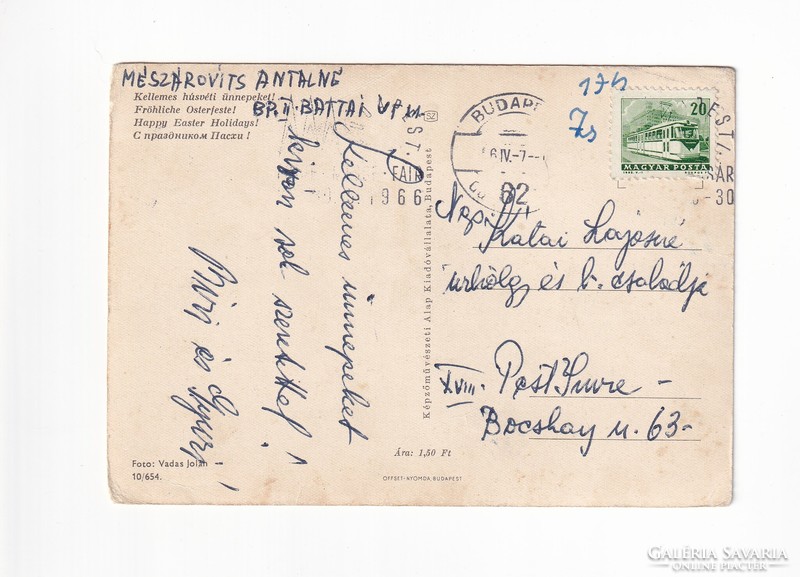 MÉSZÁROVITS ANTALNÉ
Kellemes húsvéti ünnepeket!
Fröhliche Osterfeste!
Happy Easter Holidays!
С праздником Пасхи !
BP. II. BATTAI
Kellemes ünnepeket
kíván sok szeretettel !
és
176
Zs
BUDAPE
6 IV.-7.-
62
EST
FAIR
1966
-30
20
MAGYAR POSTA
Képzőművészeti Alap Kiadóvállalata, Budapest
SZ
Nagys.
Kátai Lajosné
úrhölgy és b. családja
XVIII. Pest Imre -
Bocskay u. 63-
Ára: 1,50 Ft
Foto: Vadas Jolán
10/654.
OFFSET-NYOMDA, BUDAPEST
GALÉRIA SAVARIA
ONLINE PIACTÉR